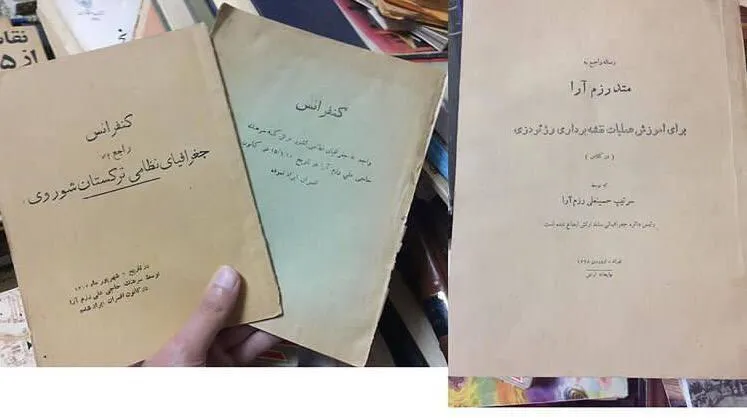 کنفرانس
راجع به
جغرافیای نظامی ترکستان شوروی
در تاریخ شهریور ماه
توسط سرهنگ حاجی علی رزم آرا
در کانون افسران ایراد شده
کنفرانس
راجع به جغرافیای نظامی کشور
حاجی علی رزم آرا در تاریخ در کانون
افسران ایراد نموده
رساله راجع به
متد رزم آرا
برای آموزش عملیات نقشه برداری و ژئودزی
( در کلاس )
که توسط
سرتیپ حسینعلی رزم آرا
رئیس دائره جغرافیائی ستاد ارتش ابداع شده است
تهران - فروردین ۱۳۲۸
چاپخانه ارتش
نقاش
از ۵